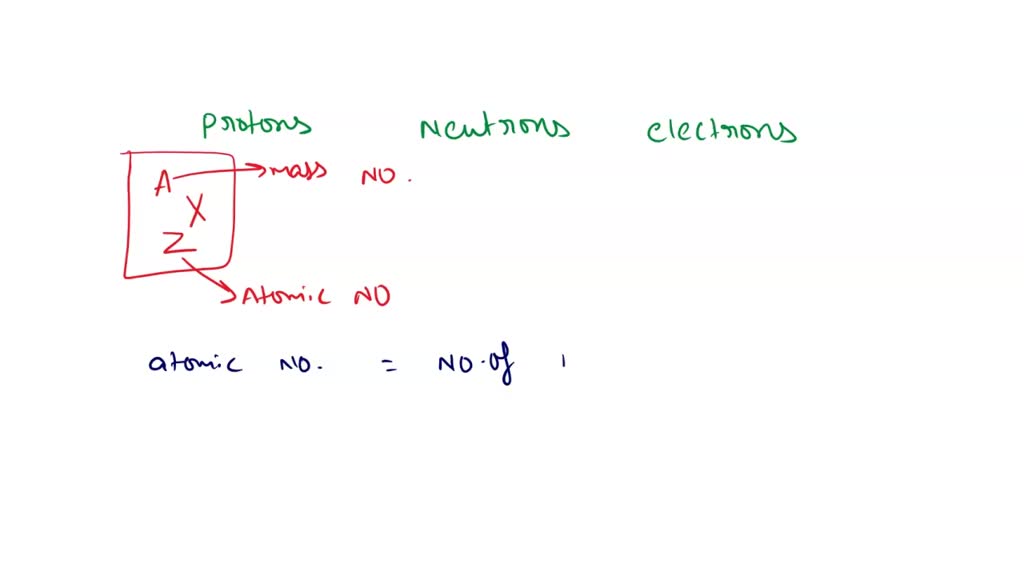 Protons Neutrons electrons
A mass NO.
X
Z
Atomic NO
atomic NO. = NO. of